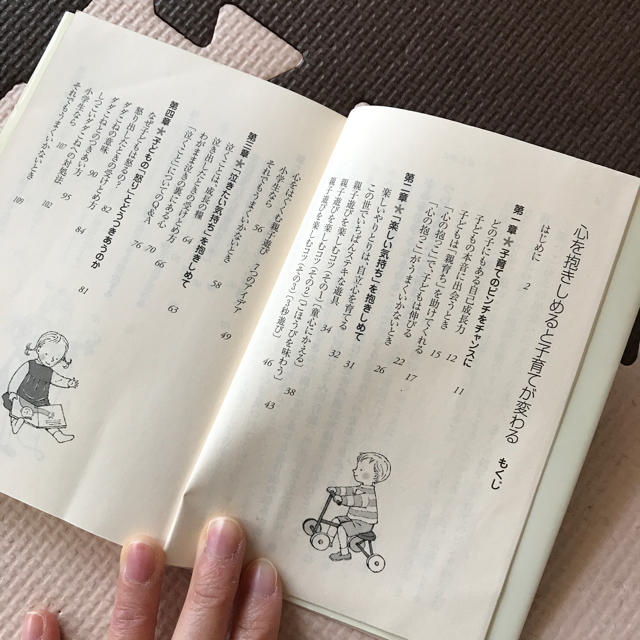 心を抱きしめると子育てが変わる もくじ
はじめに 2
第一章★子育てのピンチをチャンスに 11
どの子にもある自己成長力 12
子どもの本音に出会うとき 15
子どもは「親育ち」を助けてくれる 17
「心の抱っこ」で、子どもは伸びる 22
「心の抱っこ」がうまくいかないとき 26
第二章★「楽しい気持ち」を抱きしめて
楽しいやりとりは、自立心を育てる 31
この世でいちばんステキな遊具 32
親子遊びを楽しむコツ〈その1〉〔童心にかえる〕 34
親子遊びを楽しむコツ〈その2〉〔ごほうびを味わう〕 38
親子遊びを楽しむコツ〈その3〉〔1秒遊び〕 43
心をほぐす、親子遊び 5つのアイデア 46
小学生なら 49
それでもうまくいかないとき 56
第三章★「泣きたい気持ち」を抱きしめて
泣くことは、成長の糧 58
泣き出したときの受けとめ方 63
わがまま泣きの裏にある心 64
「泣くこと」についてのQ&A 66
第四章★子どもの「怒り」とどうつきあうのか
なぜ子どもは怒るの? 70
怒り出したときの受けとめ方 76
ダダこねの意味 81
ダダこねとのつきあい方 82
しつこいダダこね 84
小学生なら 90
「ダダこね」の対処法 95
それでもうまくいかないとき 102
107
109